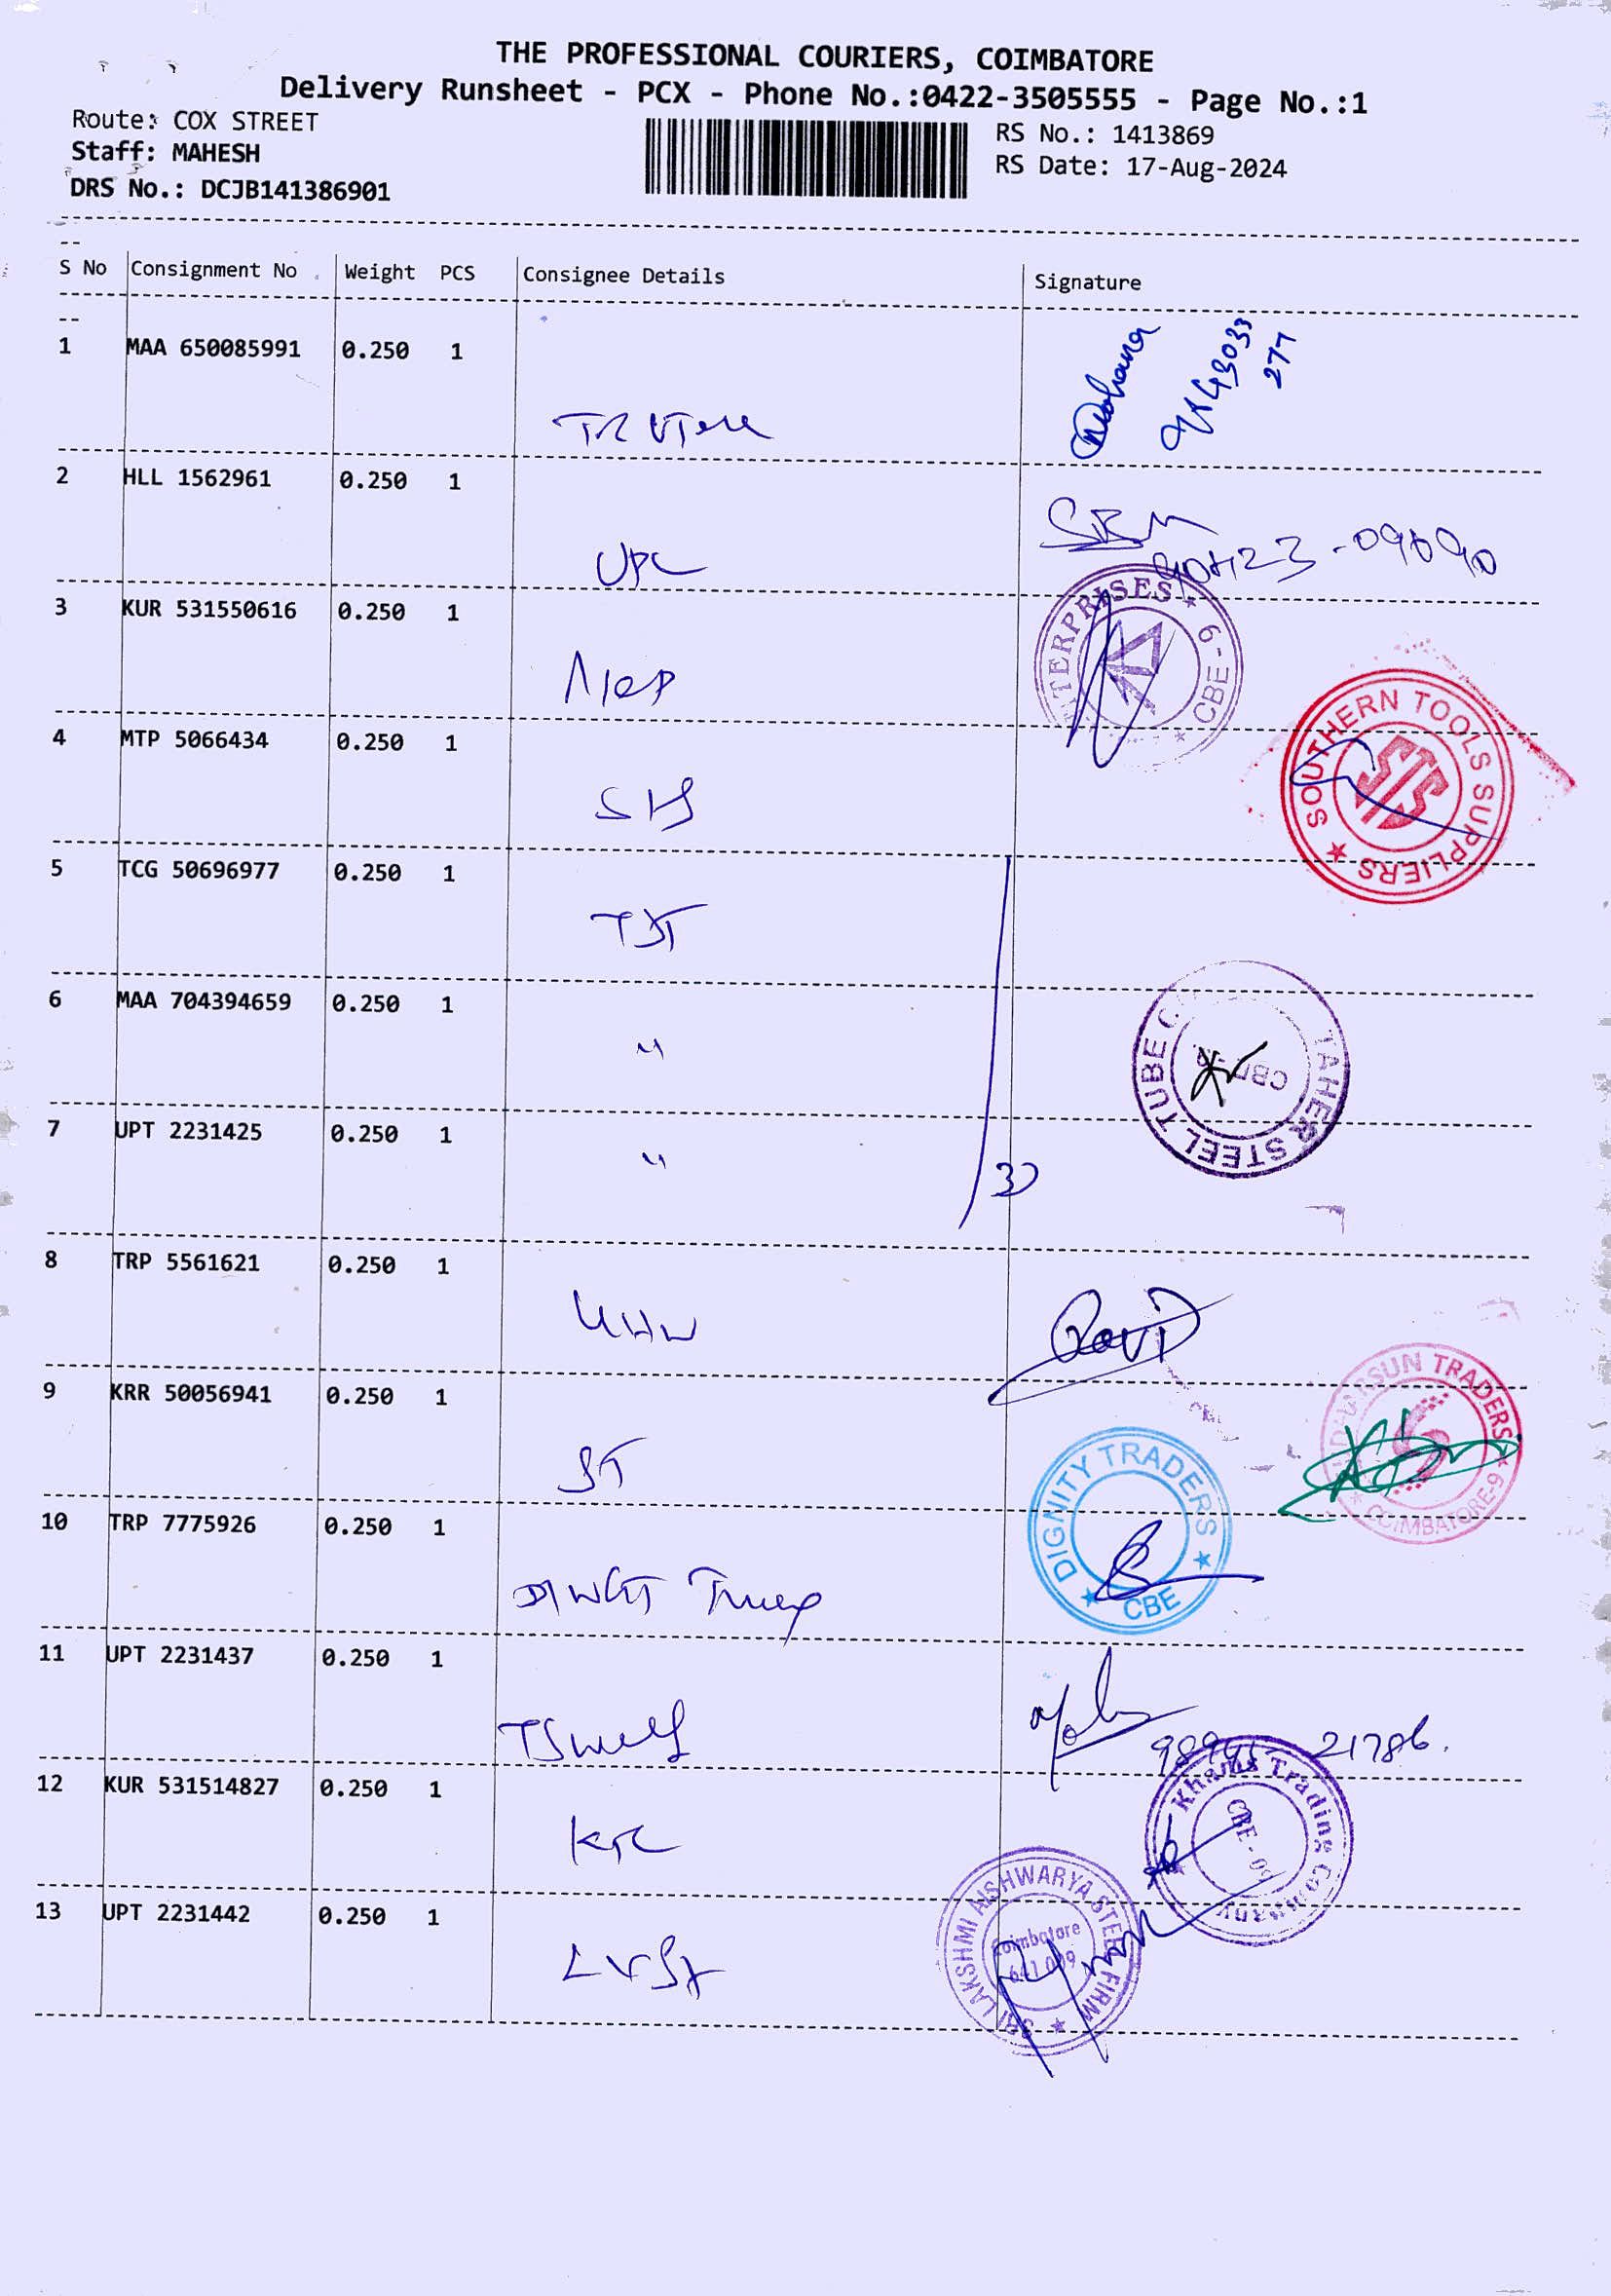 THE PROFESSIONAL COURIERS, COIMBATORE
Delivery Runsheet - PCX - Phone No.:0422-3505555 - Page No.:1
Route: COX STREET
Staff: MAHESH
DRS No.: DCJB141386901
RS No.: 1413869
RS Date: 17-Aug-2024
S No Consignment No Weight PCS Consignee Details Signature
1 MAA 650085991 0.250 1
277
2 HLL 1562961 0.250 1
UPC
3 KUR 531550616 0.250 1
TERPRISES ★ 9 - CBE ★
4 MTP 5066434 0.250 1
★ SOUTHERN TOOLS SUPPLIERS
STS
5 TCG 50696977 0.250 1
TST
6 MAA 704394659 0.250 1
"
TAHER STEEL TUBE C
7 UPT 2231425 0.250 1
"
8 TRP 5561621 0.250 1
Ravi
9 KRR 50056941 0.250 1
ST
SUN TRADERS ★ COIMBATORE-9 ★
10 TRP 7775926 0.250 1
★ DIGNITY TRADERS ★ CBE
11 UPT 2231437 0.250 1
21786.
12 KUR 531514827 0.250 1
KTC
Trading Company
CBE - 09
13 UPT 2231442 0.250 1
SRI LAKSHMI AISHWARYA STEEL FIRM ★
Coimbatore